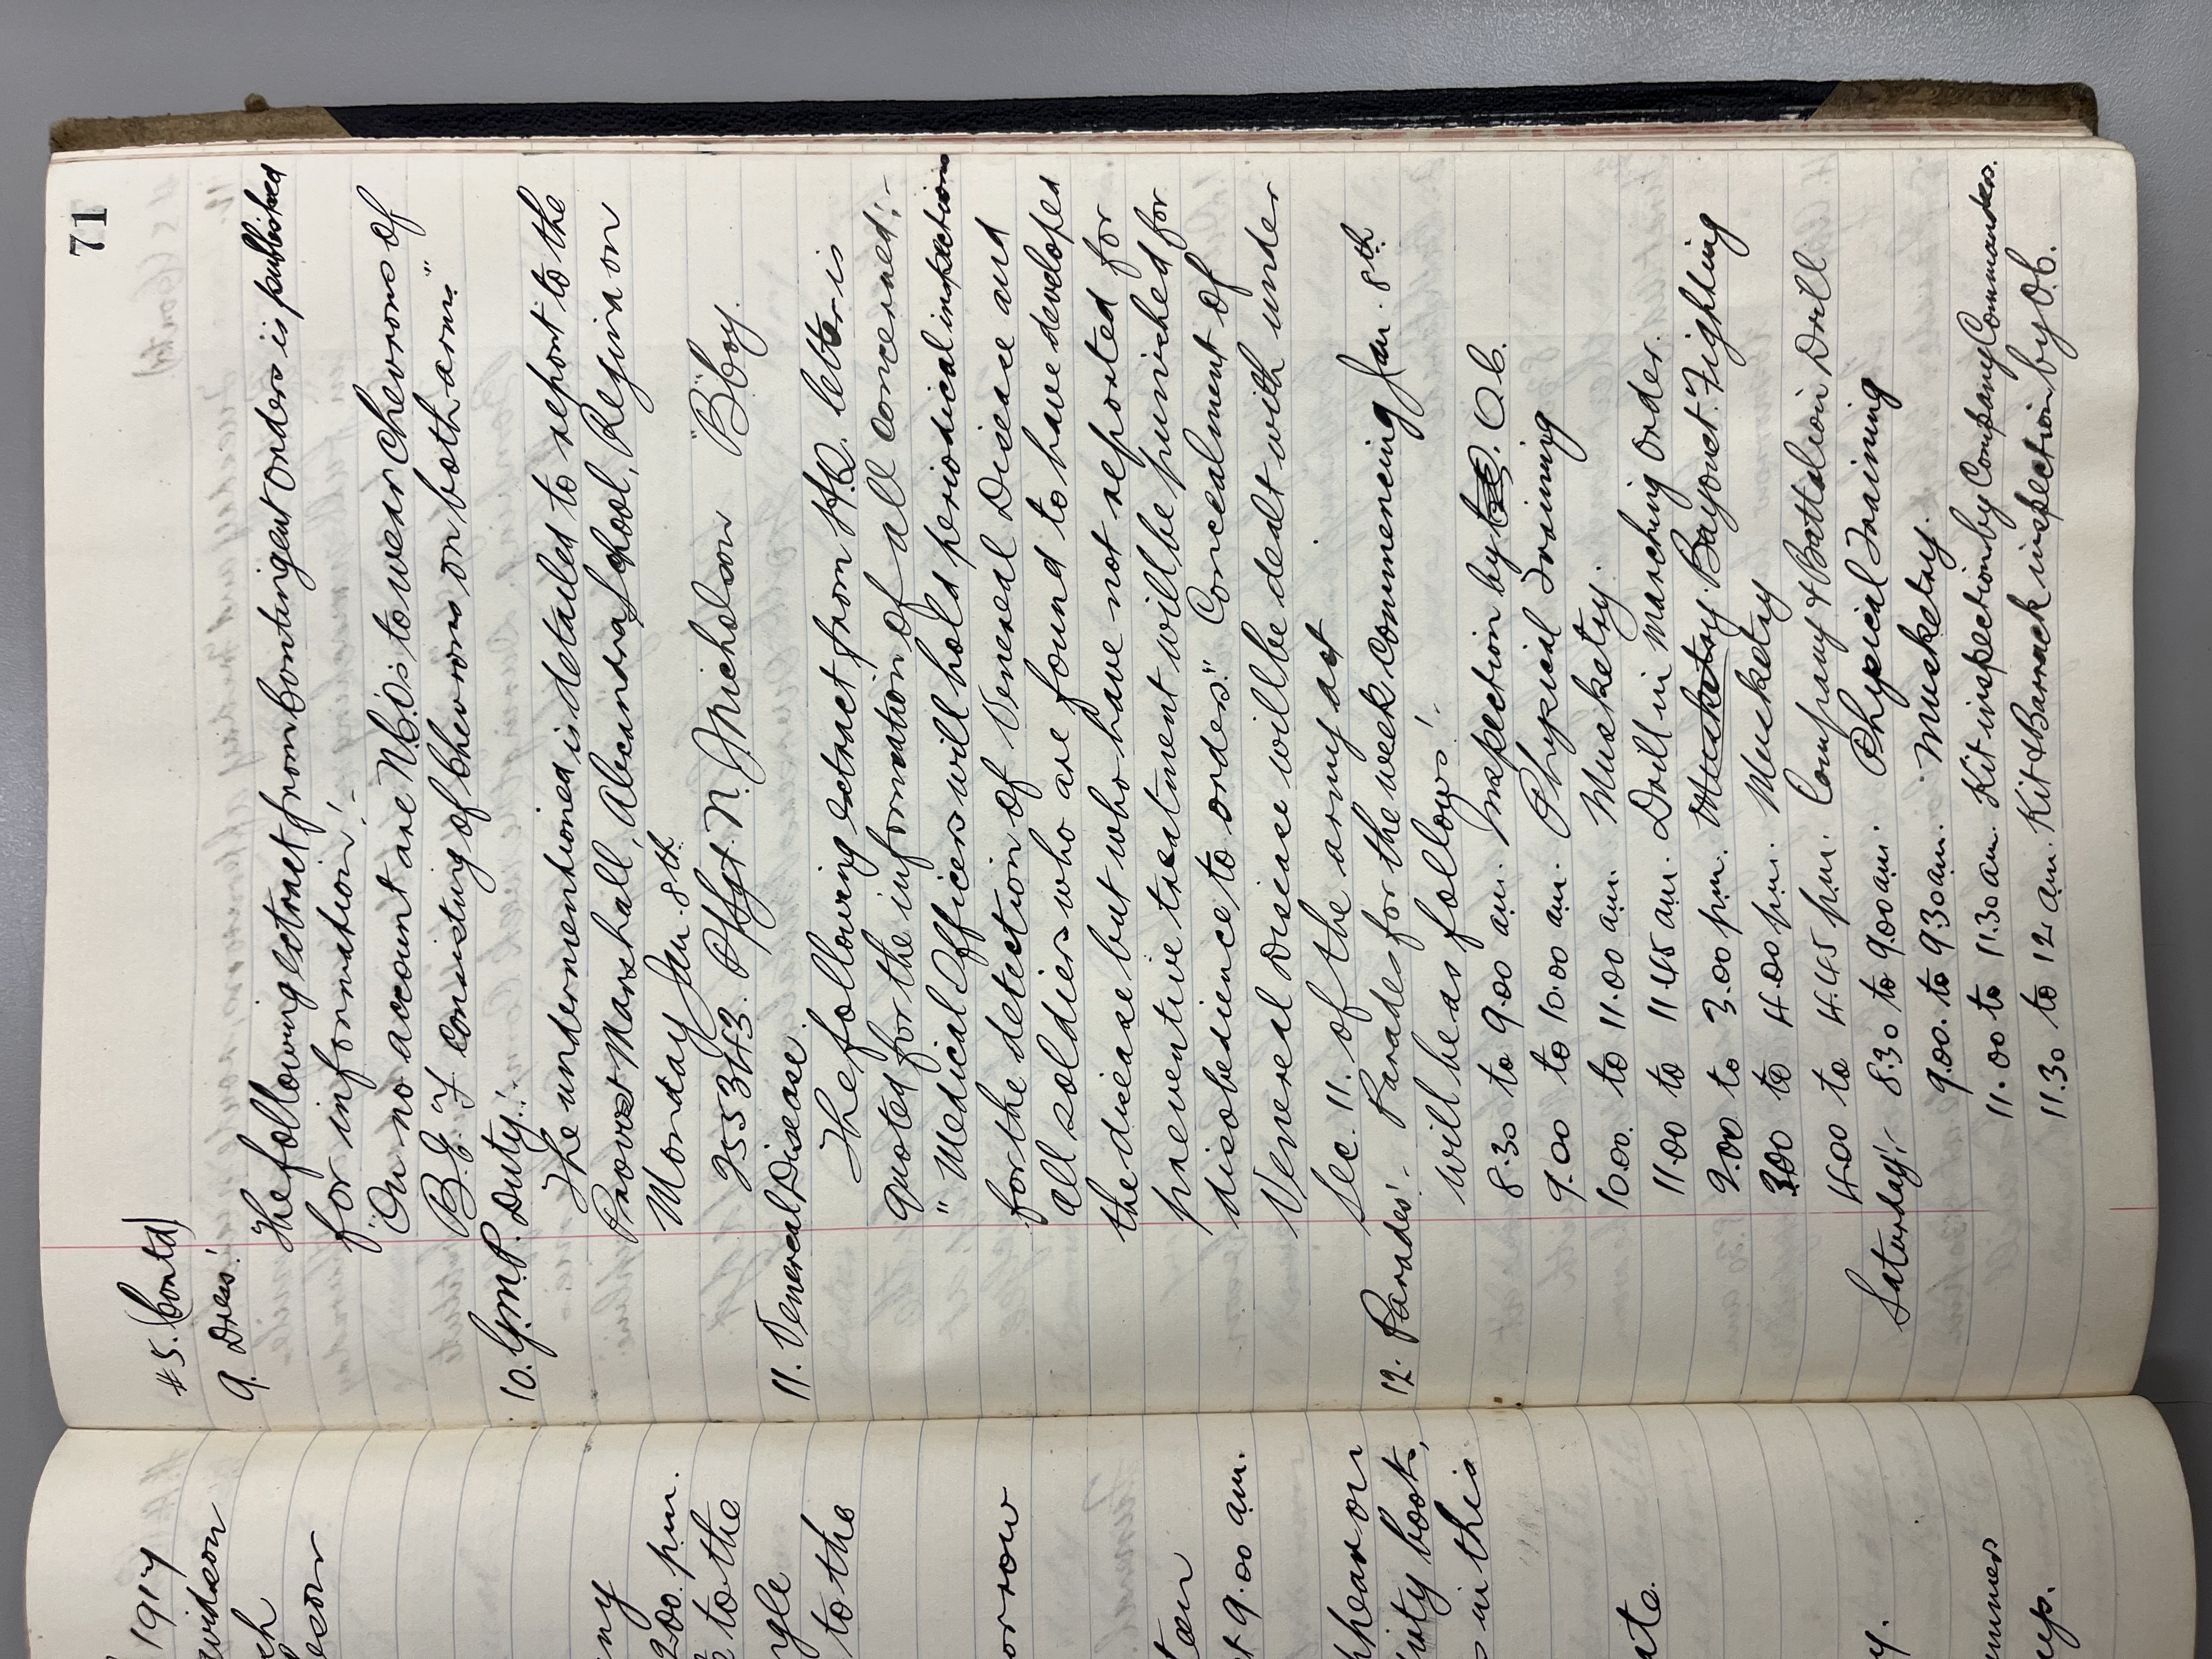 71
#5. (Contd)
9. Dress:
The following extract from Contingent Orders is published
for information:-
"On no account are N.C.O's to wear Chevrons of
B.J. consisting of Chevrons on both arms."
10. G.M.P. Duty:-
The undermentioned is detailed to report to the
Provost Marshall, Alexandra School, Regina on
Monday Jan. 8th
255343. N. Nicholson "B" Coy.
11. Venereal Disease.
The following extract from HQ. letter is
quoted for the information of all concerned:-
"Medical Officers will hold periodical inspections
for the detection of Venereal Disease and
all soldiers who are found to have developed
the disease but who have not reported for
preventive treatment will be punished for
disobedience to orders." Concealment of
Venereal Disease will be dealt with under
Sec. 11. of the army act.
12. Parades:- Parades for the week commencing Jan. 8th
will be as follows:-
8.30 to 9.00 am. Inspection by O.C.
9.00 to 10.00 am. Physical Training
10.00. to 11.00 am. Musketry.
11.00 to 11.45 am. Drill in Marching Order.
2.00 to 3.00 pm. Musketry. Bayonet Fighting
3.00 to 4.00 pm. Musketry
4.00 to 4.45 pm. Company & Battalion Drill
Saturday:- 8.30 to 9.00 am. Physical Training
9.00. to 9.30 am. Musketry.
11.00 to 11.30 am. Kit inspection by Company Commanders.
11.30 to 12 am. Kit & Barrack inspection by O.C.
1917
2.00. pm.
to the
to the
9.00 am.
in this